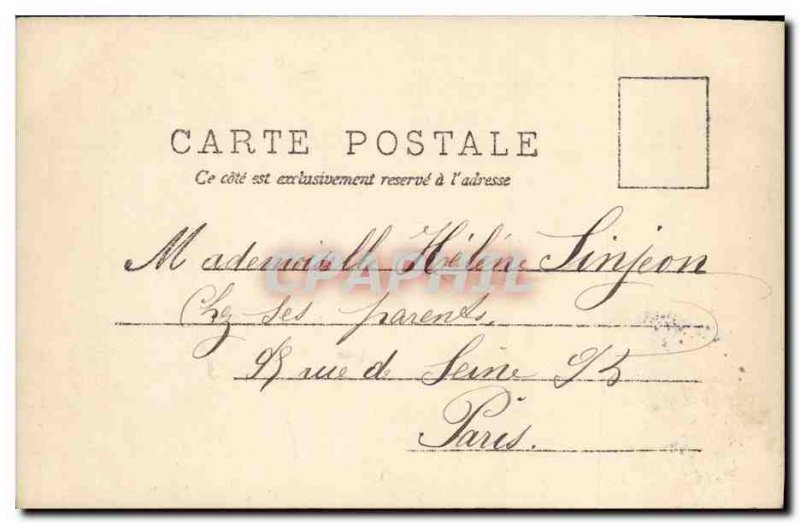 CARTE POSTALE
Ce côté est exclusivement reservé à l'adresse
Mademoiselle Hélène Sinjeon
CPAPHIL
Chez ses parents,
rue de Seine
Paris.